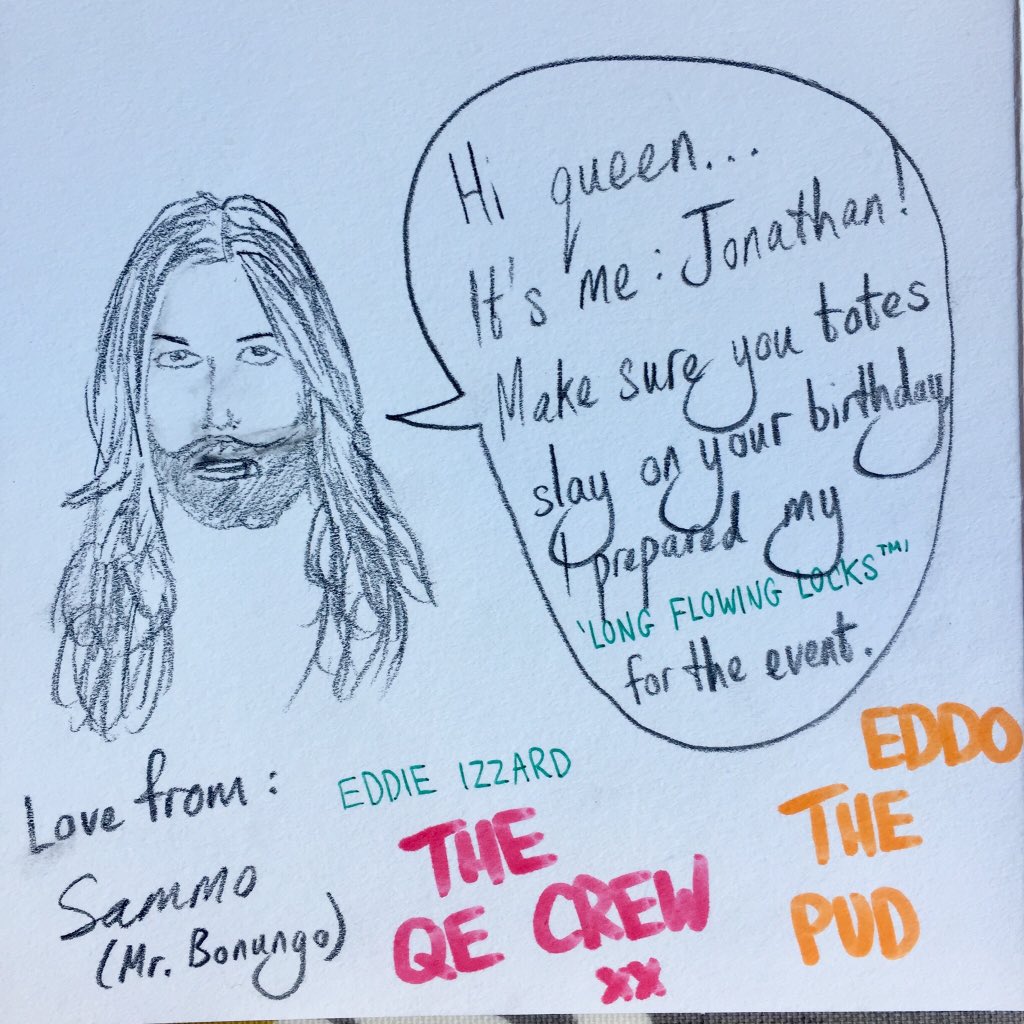 Hi queen...
It's me: Jonathan!
Make sure you totes
slay on your birthday,
I prepared my
'LONG FLOWING LOCKS™'
for the event.
Love from:
Sammo
(Mr. Bonungo)
EDDIE IZZARD
THE
QE CREW
xx
EDDO
THE
PUD